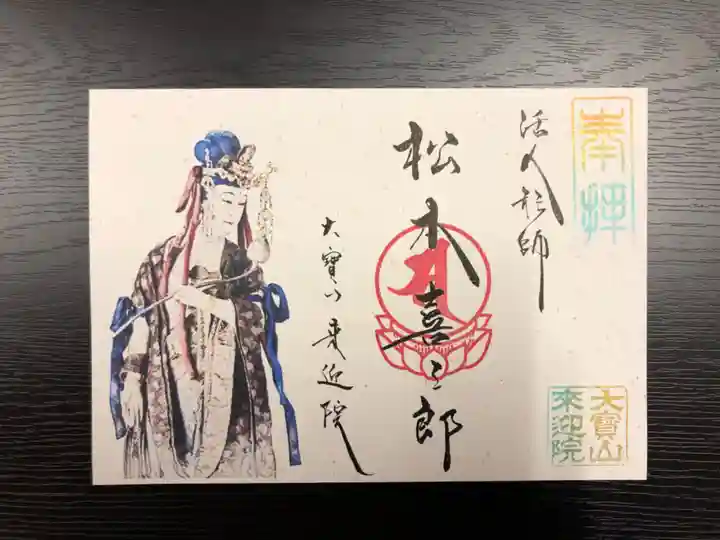 奉拝
活人形師
松本喜三郎
大寶山 来迎院
大寶山
來迎院